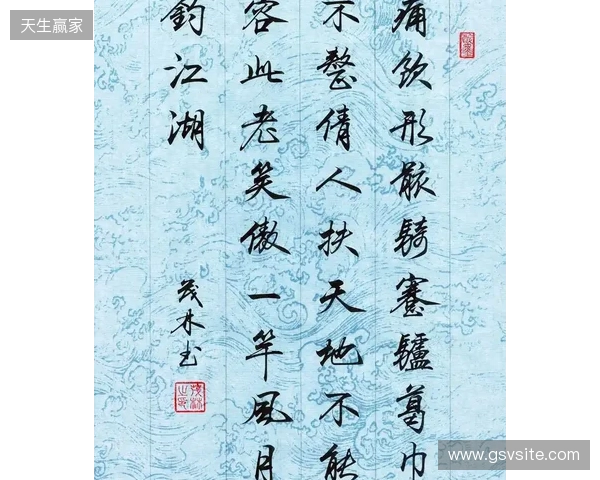 天生赢家
痛飲形骸騎蹇驢葛巾
不整倩人扶天地不能
容此老笑傲一竿風月
釣江湖
茂林书
www.gsvsite.com